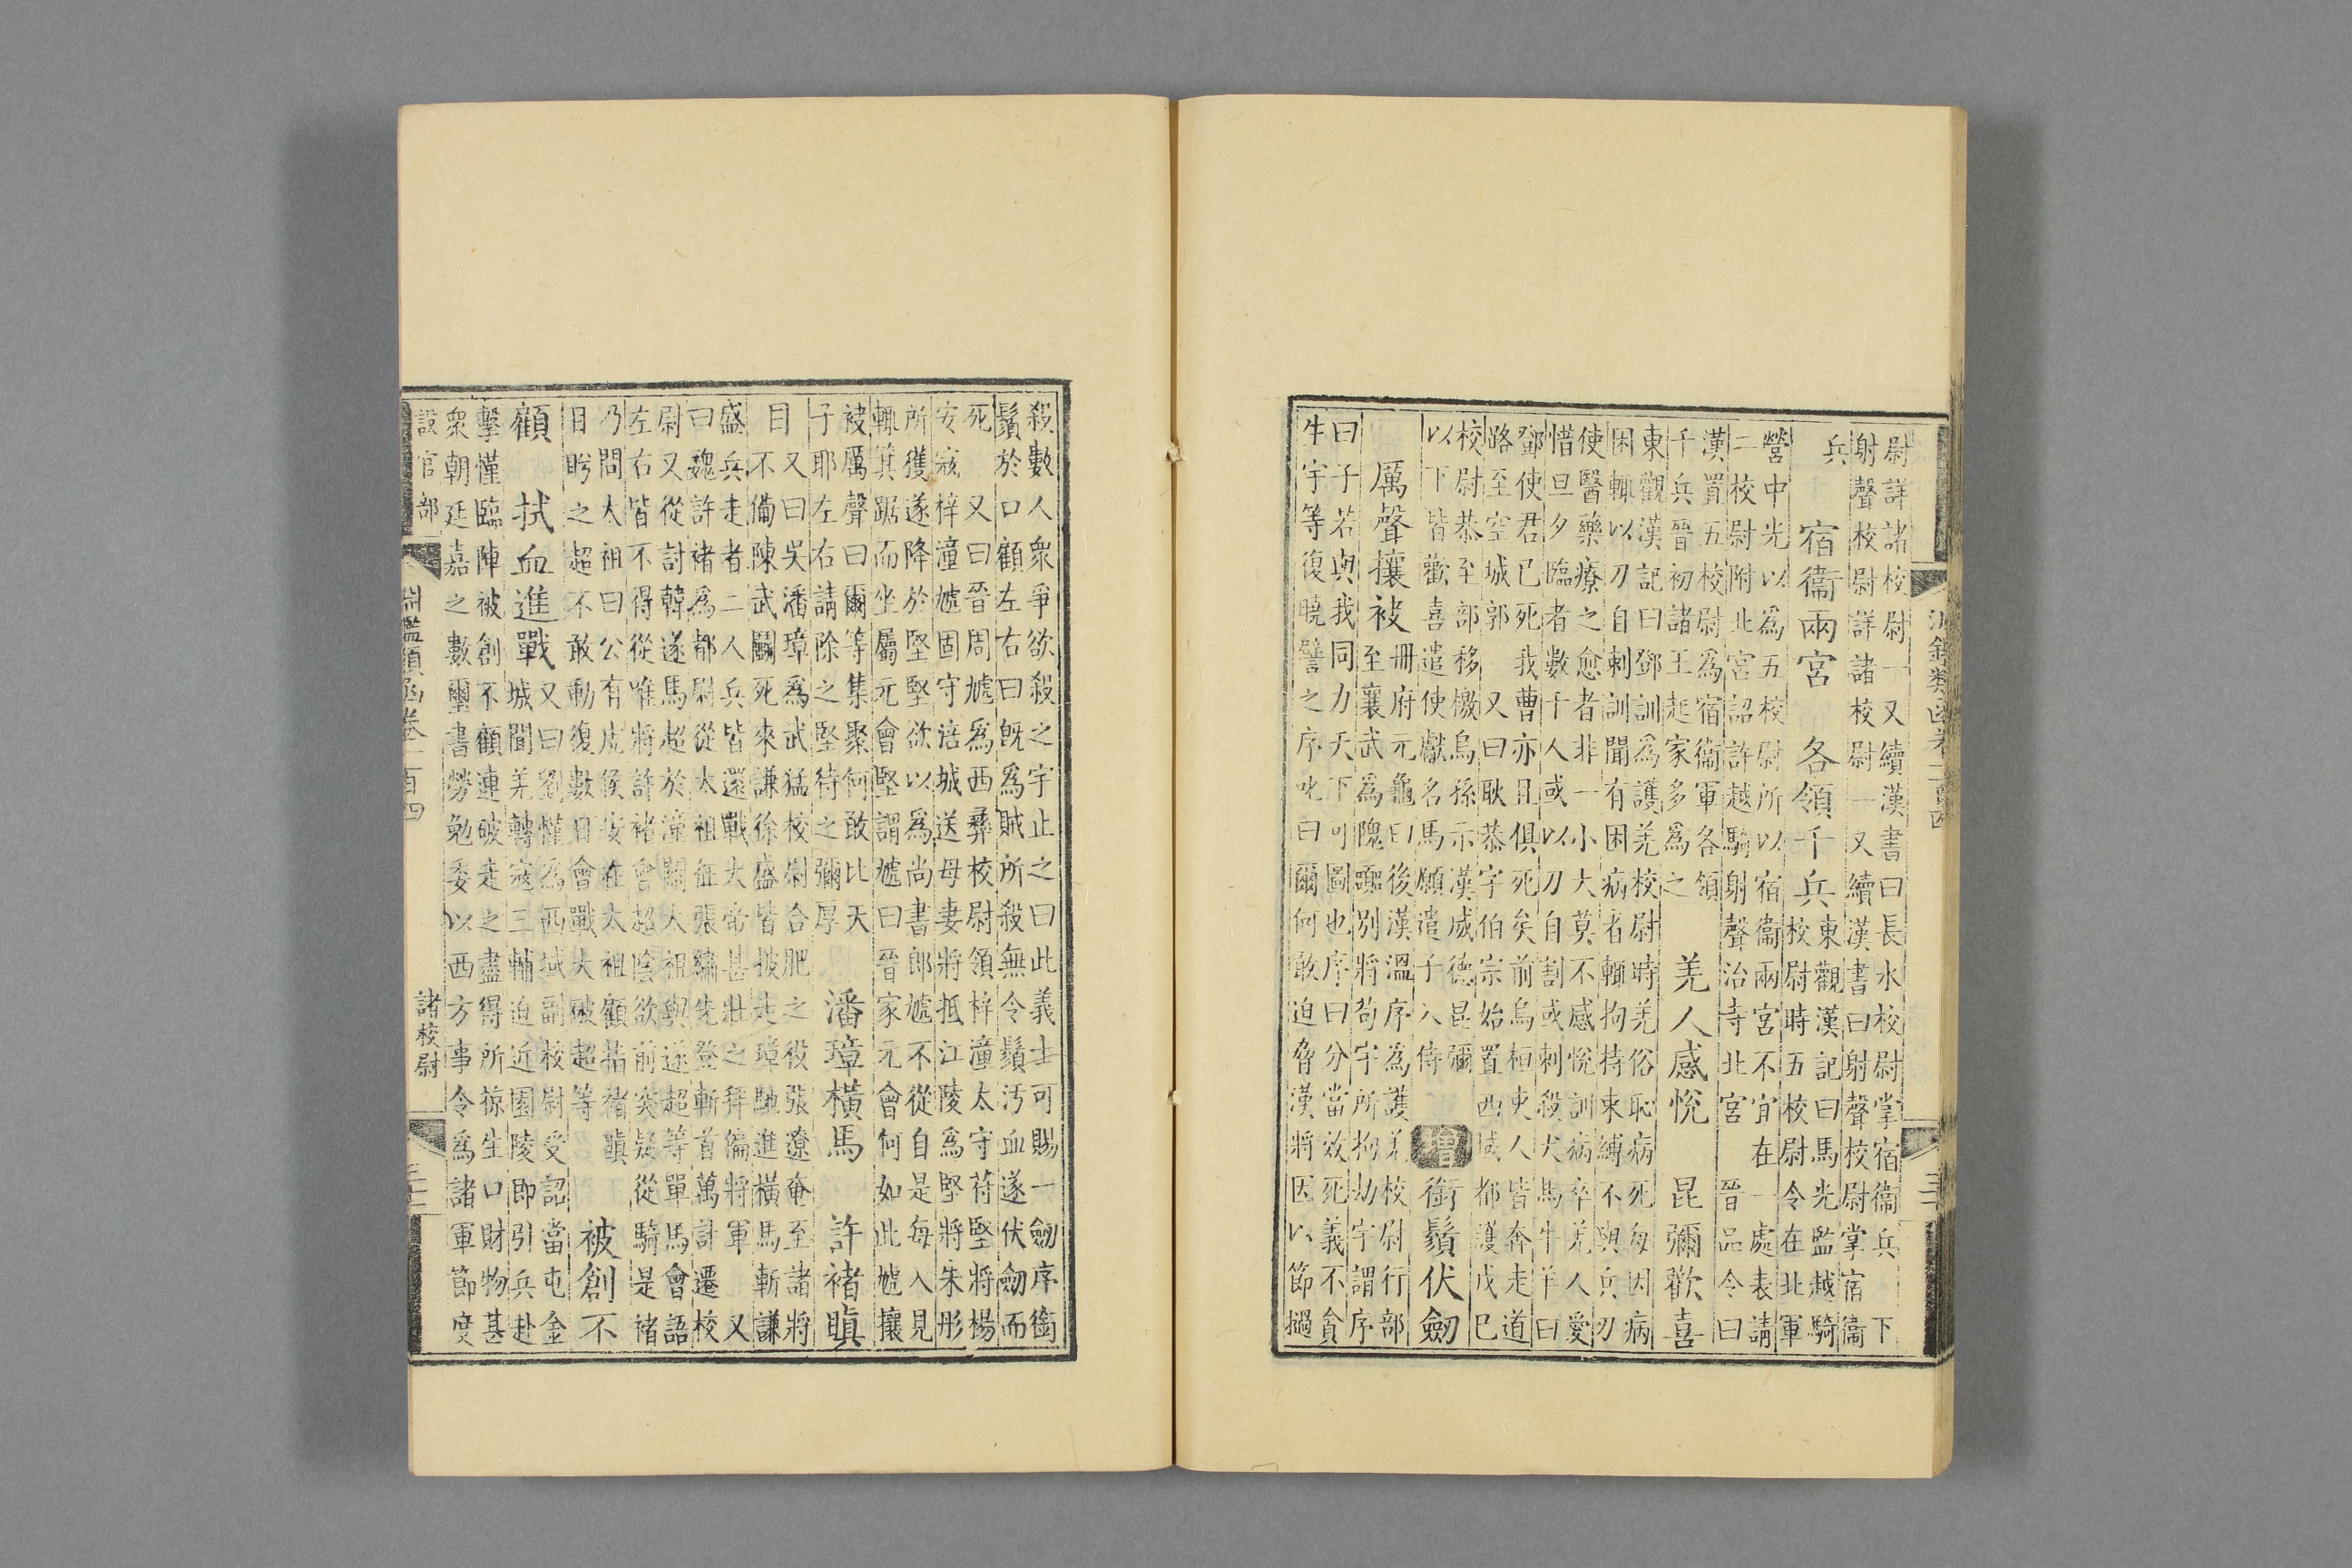 尉詳諸校尉一又續漢書曰長水校尉掌宿衞兵　下
射聲校尉詳諸校尉一又續漢書曰射聲校尉掌宿衞
兵　宿衞兩宮　各領千兵
東觀漢記曰馬光監越騎
校尉時五校尉令在北軍
營中光以爲五校尉所以宿衞兩宮不宜在一處表請
二校尉附北宮詔許越騎射聲治寺北宮　晉品令曰
漢置五校尉爲宿衞軍各領
千兵晉初諸王起家多爲之
羌人感悅　昆彌歡喜
東觀漢記曰鄧訓爲護羌校尉時羌俗恥病死每因病
困輒以刀自刺訓聞有困病者輒拘持束縛不與兵刃
使醫藥療之愈者非一小大莫不感悅訓病卒羌人愛
惜旦夕臨者數千人或以刀自割或刺殺犬馬牛羊曰
鄧使君已死我曹亦且俱死矣前烏桓吏人皆奔走道
路至空城郭　又曰耿恭字伯宗始置西域都護戊巳
校尉恭至部移檄烏孫示漢威德昆彌
以下皆歡喜遣使獻名馬願遣子入侍
增　銜鬚伏劒
厲聲攘被
冊府元龜曰後漢溫序爲護羌校尉行部
至襄武爲隗囂別將苟宇所拘劫宇謂序
曰子若與我同力天下可圖也序曰分當效死義不貪
牛宇等復曉譬之序叱曰爾何敢迫脅漢將因以節撾
殺數人衆爭欲殺之宇止之曰此義士可賜一劒序銜
鬚於口顧左右曰旣爲賊所殺無令鬚汚血遂伏劒而
死　又曰晉周虓爲西彝校尉領梓潼太守苻堅將楊
安宼梓潼虓固守涪城送母妻將抵江陵爲堅將朱彤
所獲遂降於堅堅欲以爲尚書郎虓不從自是每入見
輒箕踞而坐屬元會堅謂虓曰晉家元會何如此虓攘
被厲聲曰爾等集聚何敢比天
子耶左右請除之堅待之彌厚
潘璋橫馬　許褚瞋
目
又曰吳潘璋爲武猛校尉合肥之役張遼奄至諸將
不備陳武鬬死來謙徐盛皆披走璋馳進橫馬斬謙
盛兵走者二人兵皆還戰大帝甚壯之拜偏將軍　又
曰魏許褚爲都尉從太祖征張繡先登斬首萬計遷校
尉又從討韓遂馬超於潼關太祖與遂超等單馬會語
左右皆不得從唯將許褚會超陰欲前突疑從騎是褚
乃問太祖曰公有虎侯安在太祖顧指褚瞋
目盻之超不敢動復數日會戰大破超等
被創不
顧　拭血進戰
又曰劉懂爲西域副校尉受詔當屯金
城聞羌轉宼三輔迫近園陵即引兵赴
擊懂臨陣被創不顧連破走之盡得所掠生口財物甚
衆朝廷嘉之數璽書勞勉委以西方事令爲諸軍節度
設官部
淵鑑類函卷一百四
諸校尉